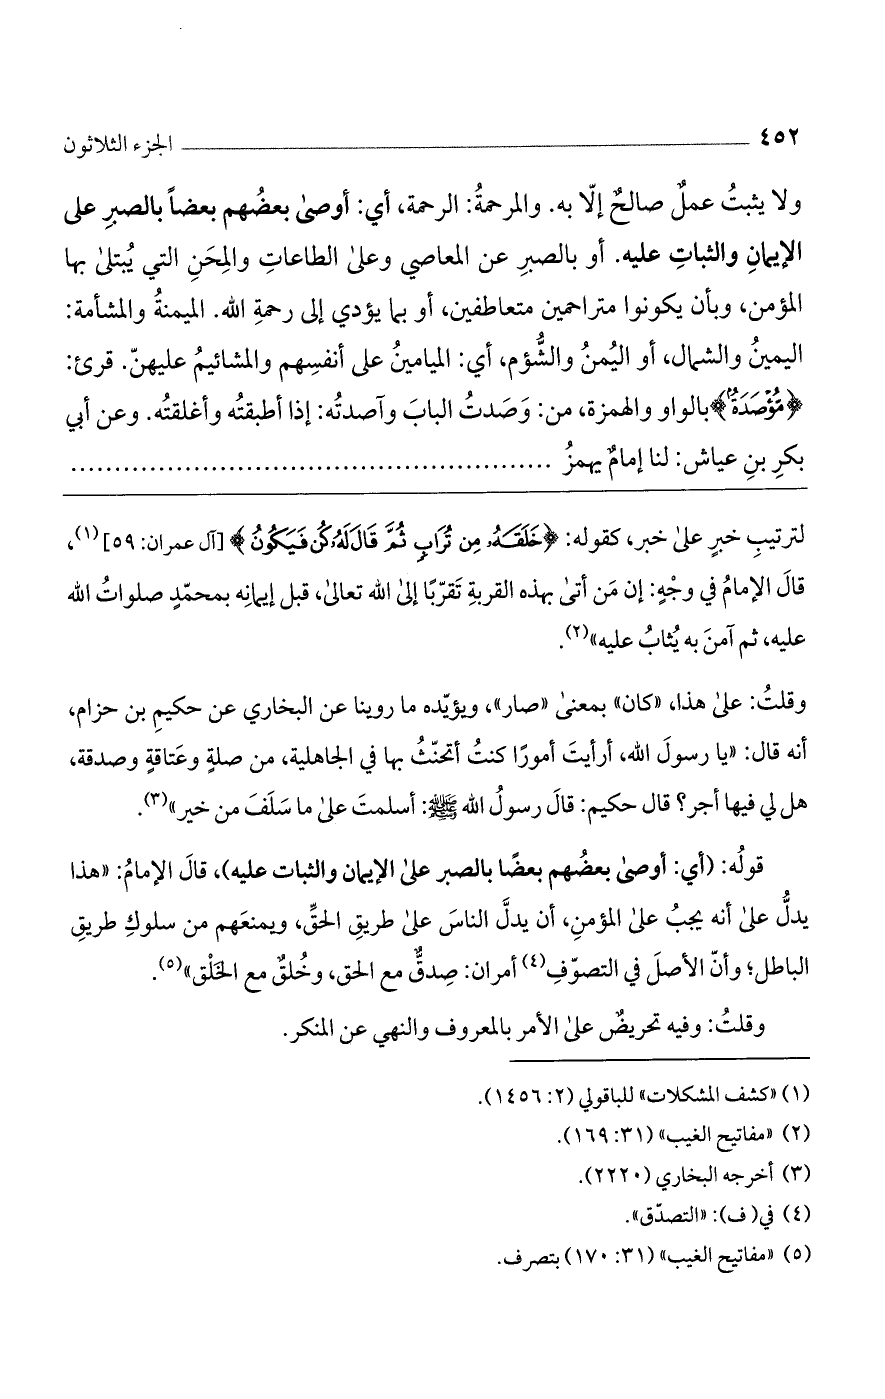 ٤٥٢ الجزء الثلاثون
ولا يثبتُ عملٌ صالحٌ إلّا به. والمرحمةُ: الرحمة، أي: أوصىٰ بعضُهم بعضاً بالصبرِ على
الإيمانِ والثباتِ عليه. أو بالصبرِ عن المعاصي وعلىٰ الطاعاتِ والمِحَنِ التي يُبتلىٰ بها
المؤمن، وبأن يكونوا متراحمين متعاطفين، أو بما يؤدي إلى رحمةِ الله. الميمنةُ والمشأمة:
اليمينُ والشمال، أو اليُمنُ والشُّؤم، أي: الميامينُ على أنفسِهم والمشائيمُ عليهنّ. قرئ:
﴿مُّؤْصَدَةٌ﴾ بالواو والهمزة، من: وَصَدتُ البابَ وآصدتُه: إذا أطبقتُه وأغلقتُه. وعن أبي
بكرِ بنِ عياش: لنا إمامٌ يهمزُ ......................................................
لترتيبِ خبرٍ علىٰ خبر، كقوله: ﴿خَلَقَهُۥ مِن تُرَابٍ ثُمَّ قَالَ لَهُۥ كُن فَيَكُونُ﴾ [آل عمران: ٥٩](١)،
قالَ الإمامُ في وجْهٍ: إن مَن أتىٰ بهذه القربةِ تَقرّبًا إلىٰ الله تعالىٰ، قبل إيمانِه بمحمّدٍ صلواتُ الله
عليه، ثم آمنَ به يُثابُ عليه»(٢).
وقلتُ: علىٰ هذا، «كان» بمعنىٰ «صار»، ويؤيّده ما روينا عن البخاري عن حكيمِ بن حزام،
أنه قال: «يا رسولَ الله، أرأيتَ أمورًا كنتُ أتحنّثُ بها في الجاهلية، من صلةٍ وعَتاقةٍ وصدقة،
هل لي فيها أجر؟ قال حكيم: قالَ رسولُ الله ﷺ: أسلمتَ علىٰ ما سَلَفَ من خير»(٣).
قولُه: (أي: أوصىٰ بعضُهم بعضًا بالصبر علىٰ الإيمان والثبات عليه)، قالَ الإمامُ: «هذا
يدلُّ علىٰ أنه يجبُ علىٰ المؤمنِ، أن يدلَّ الناسَ علىٰ طريقِ الحقِّ، ويمنعَهم من سلوكِ طريقِ
الباطل؛ وأنّ الأصلَ في التصوّفِ(٤) أمران: صِدقٌ مع الحق، وخُلقٌ مع الخَلْق»(٥).
وقلتُ: وفيه تحريضٌ علىٰ الأمر بالمعروف والنهي عن المنكر.
(١) «كشف المشكلات» للباقولي (٢: ١٤٥٦).
(٢) «مفاتيح الغيب» (٣١: ١٦٩).
(٣) أخرجه البخاري (٢٢٢٠).
(٤) في( ف): «التصدّق».
(٥) «مفاتيح الغيب» (٣١: ١٧٠) بتصرف.